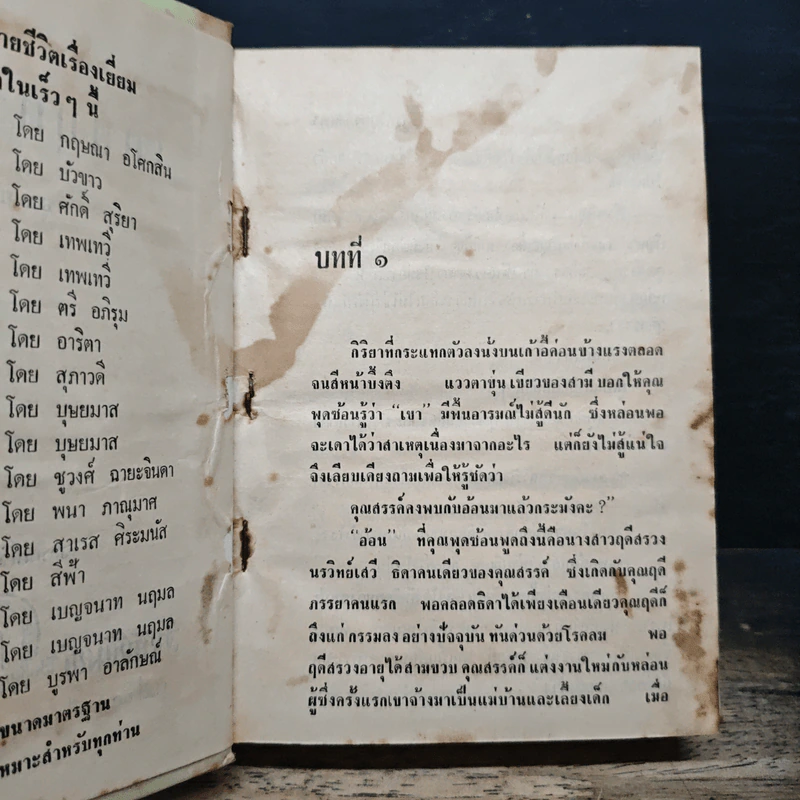 ายชีวิตเรื่องเยี่ยม
ในเร็วๆ นี้
โดย กฤษณา อโศกสิน
โดย บัวขาว
โดย ศักดิ์ สุริยา
โดย เทพเทวี
โดย เทพเทวี
โดย ตรี อภิรุม
โดย อาริตา
โดย สุภาวดี
โดย บุษยมาส
โดย บุษยมาส
โดย ชูวงศ์ ฉายะจินดา
โดย พนา ภาณุมาศ
โดย สาเรส ศิระมนัส
โดย สีฟ้า
โดย เบญจนาท นฤมล
โดย เบญจนาท นฤมล
โดย บูรพา อาลักษณ์
ขนาดมาตรฐาน
หมาะสำหรับทุกท่าน
บทที่ ๑
กิริยาที่กระแทกตัวลงนั่งบนเก้าอี้ค่อนข้างแรงตลอด
จนสีหน้าบึ้งตึง แววตาขุ่นเขียวของสามี บอกให้คุณ
พุดซ้อนรู้ว่า “เขา” มีพื้นอารมณ์ไม่สู้ดีนัก ซึ่งหล่อนพอ
จะเดาได้ว่าสาเหตุเนื่องมาจากอะไร แต่ก็ยังไม่สู้แน่ใจ
จึงเลียบเคียงถามเพื่อให้รู้ชัดว่า
คุณสรรค์คงพบกับอ้อนมาแล้วกระมังคะ ?”
“อ้อน” ที่คุณพุดซ้อนพูดถึงนี้คือนางสาวฤดีสรวง
นรวิทย์เสวี ธิดาคนเดียวของคุณสรรค์ ซึ่งเกิดกับคุณฤดี
ภรรยาคนแรก พอคลอดธิดาได้เพียงเดือนเดียวคุณฤดีก็
ถึงแก่กรรมลงอย่างปัจจุบันทันด่วนด้วยโรคลม พอ
ฤดีสรวงอายุได้สามขวบ คุณสรรค์ก็แต่งงานใหม่กับหล่อน
ผู้ซึ่งครั้งแรกเขาจ้างมาเป็นแม่บ้านและเลี้ยงเด็ก เมื่อ